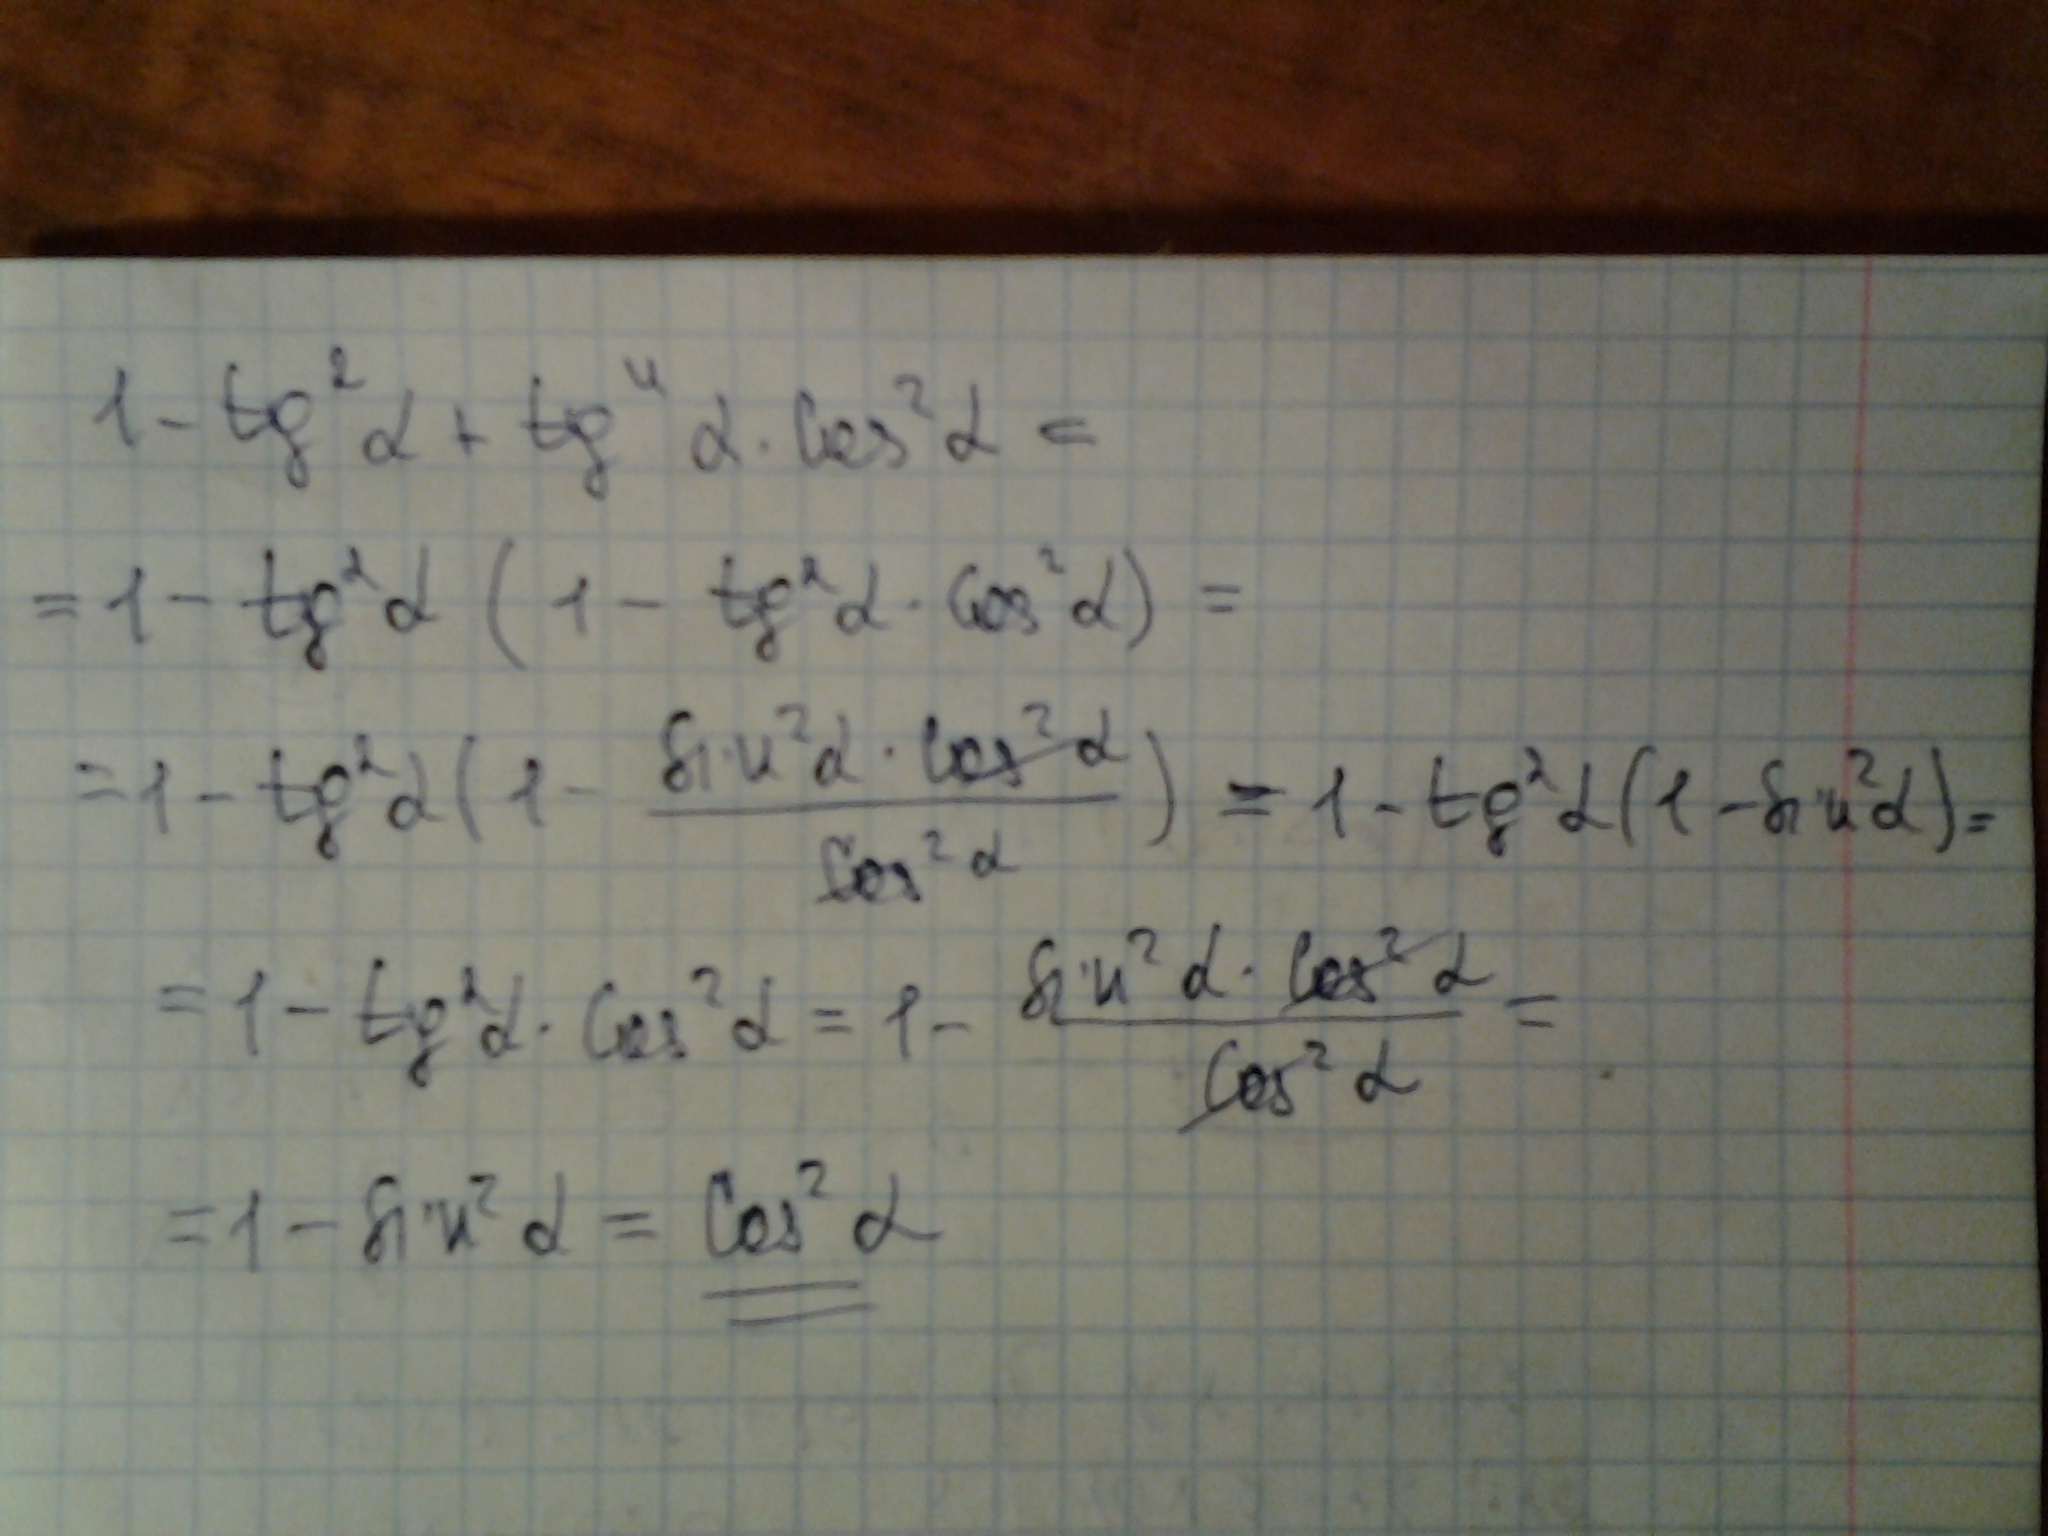 1 - tg²α + tg⁴α · cos²α =
= 1 - tg²α (1 - tg²α · cos²α) =
= 1 - tg²α (1 - (sin²α · cos²α)/(cos²α)) = 1 - tg²α (1 - sin²α) =
= 1 - tg²α · cos²α = 1 - (sin²α · cos²α)/(cos²α) =
= 1 - sin²α = cos²α